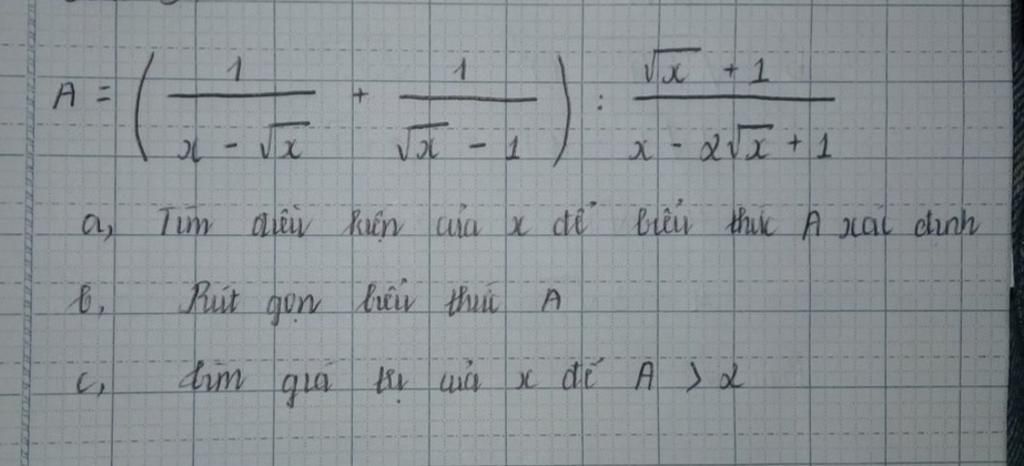 A = ( 1 / (x - √x) + 1 / (√x - 1) ) : (√x + 1) / (x - 2√x + 1)
a, Tìm điều kiện của x để biểu thức A xác định
b, Rút gọn biểu thức A
c, tìm giá trị của x để A > 2